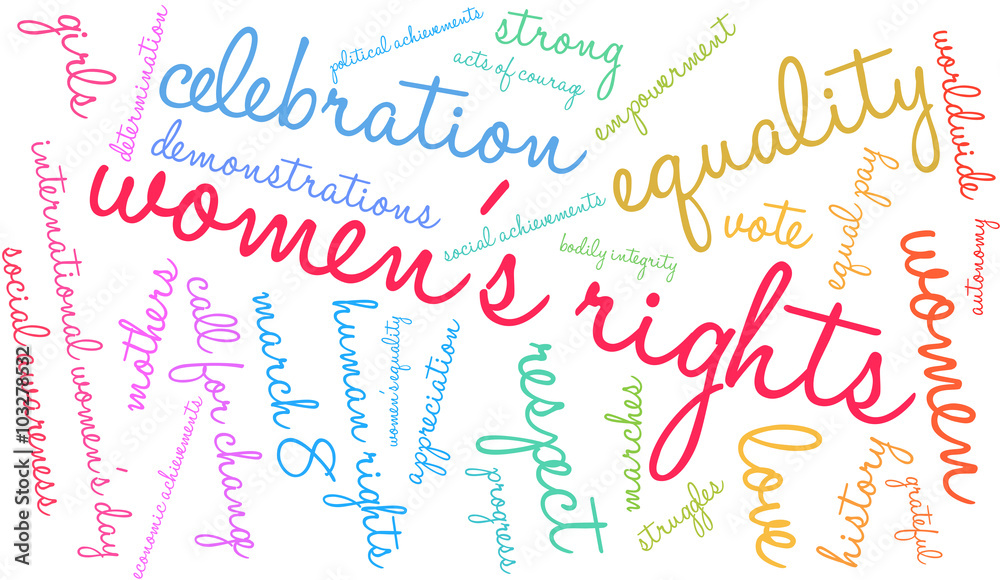 girls
determination
celebration
political achievements
strong
acts of courage
empowerment
equality
worldwide
international women's day
demonstrations
women's rights
social achievements
bodily integrity
vote
equal pay
autonomy
social awareness
mothers
call for change
march 8
human rights
women's equality
appreciation
respect
marches
love
history
women
economic achievements
progress
struggles
grateful
Adobe Stock | #103278532
Adobe Stock